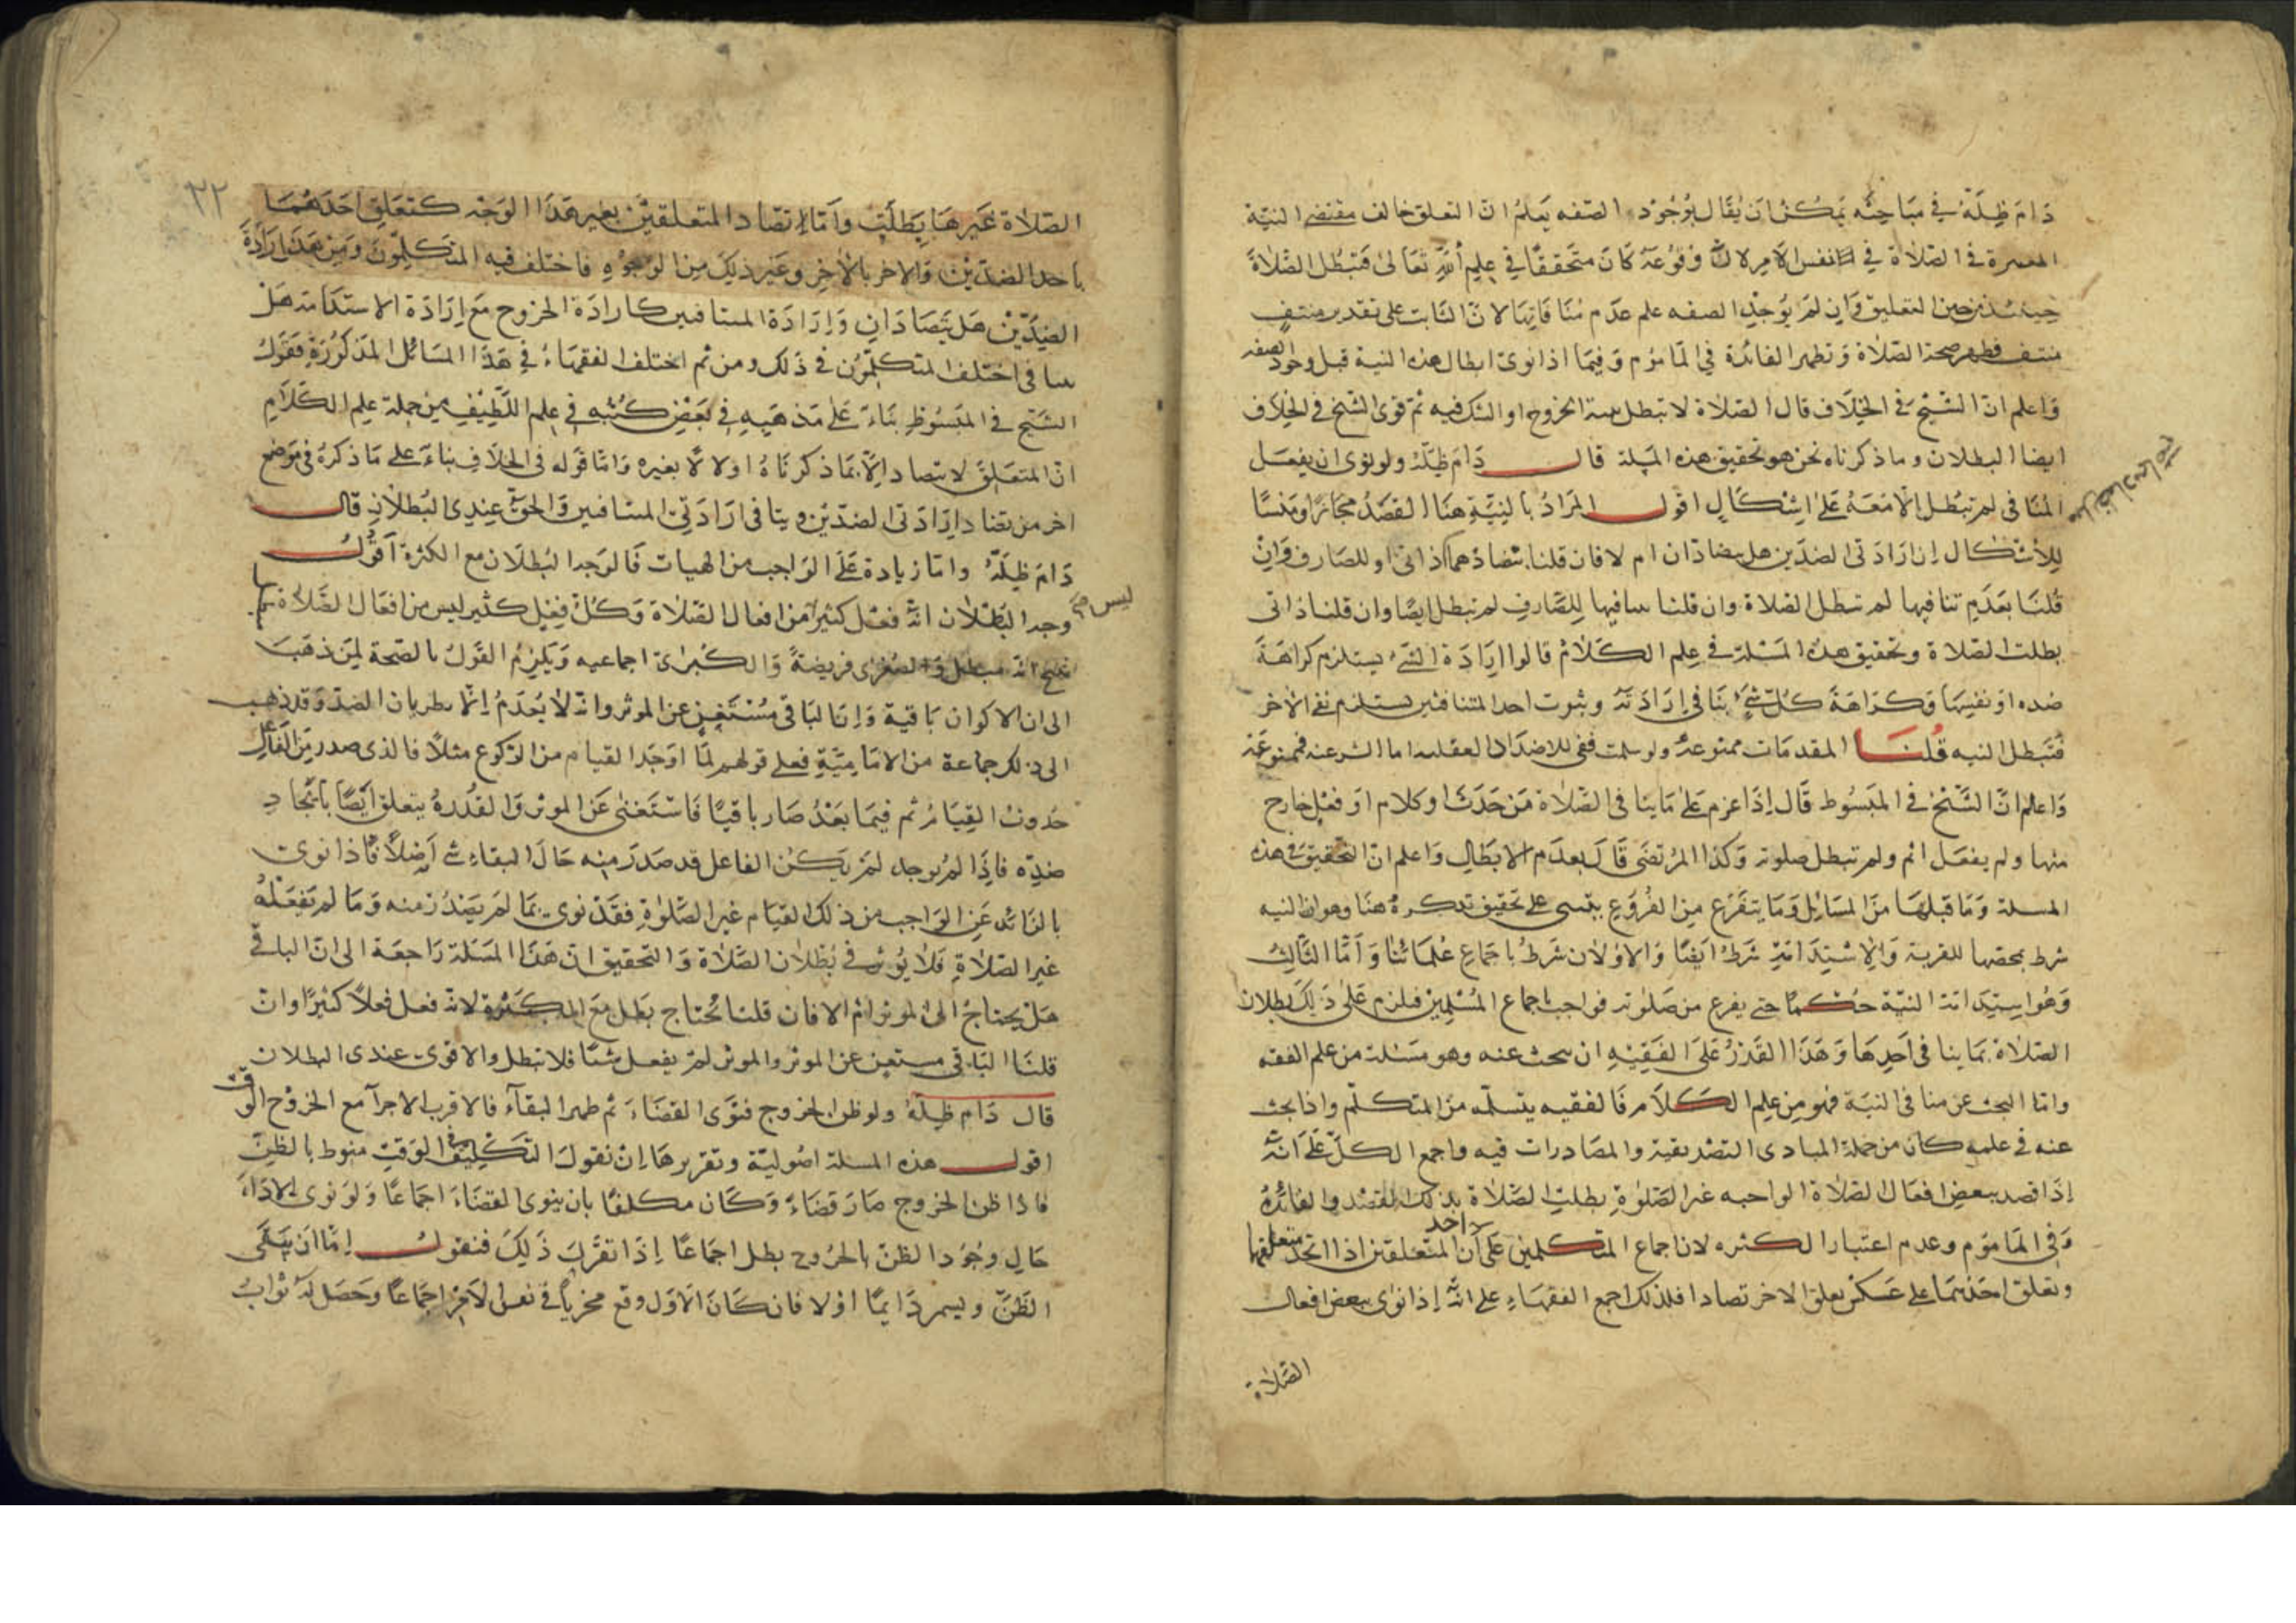 دَامَ ظِلّهُ في مبَاحثِه يمكنُ ان يُقَال بوُجُود الصّفه يَعلمُ انّ التعلق خالف مقتضى النيّة
في الصّلاة في نفس الامر لانّ وقوُعهَ كانَ متَحققًا في علِم اللهِ تعَالى فتبطل الصَّلاةَ
حينئذ من حين التعليق وَان لمَ يُوجد الصفه علم عدَم مُنَافاتِهَا لانّ الثابت على تقدير منتفٍ
منتف فظهر صحة الصّلاة وَتظهر الفائدة في المامُوم وَفيمَا اذا نوى ابطال هذه النية قبل وجود الصفه
وَاعلم انّ الشيّخ في الخِلَاف قال الصلاة لا تبطل بنية الخروج او الشك فيه ثم قوى الشيخ في الخِلَاف
ايضا البطلان وما ذكرناه نحن هو تحقيق هذه المسلة قال دَامَ ظِلّهُ ولو نوى ان يفعَل
المنَافى لم تبُطل الا مَعَهُ عَلىَ اِشكَالٍ اقول المرَادُ بالنيّةِ هنَا القصَدُ مجَازًا ومَنشَا
للاشكال ان ارَادَتى الضدّين هل يتضادّان ام لا فان قلنا بتضادّهما ذاتى او للصَارف وَانْ
قُلنَا بعَدَم تنافيها لم تبطل الصَلاة وان قلنا بتنافيها للِصَّارف لم تبطل ايضًا وان قلنا ذاتى
بطلت الصّلاة وتحقيق هذه المَسْئلة في عِلم الكلامُ قالوا اِرَادَة الشئ يستلزم كراهَةَ
ضده اوَ نفسِهَا وَكرَاهَةَ كلّ شئٍ يُنَافى اِرَادَتَه وثبوت احد المتنافيين يستلزم نفى الاخر
فتبَطل النيه قُلنَا المقدمَات ممنوعة ولو سلمت ففى الاضدَاد العقليه اما الشرعيه فممنوعَة
وَاعلم انّ الشّيْخ في المبَسُوط قَال اِذَا عزم عَلىَ مَا ينَافى الصّلاة مَن حَدَث او كلام اوَ فعْل خارج
منها ولم يفعَل اثم ولم تبطل صلوته وَكذا المرُتضى قَالَ بعدَم الابطَالِ وَاعلم انّ التحقيق في هذه
المسلة وَمَا قبلهَا منَ المسَائِل وَمَا يتفَرّع مِنَ الفُروُعِ يبتنى على تحقيق نذكرهُ هنَا وهوان النيه
شرط بمحضها للقربة وَالاِسْتِدَامَة شرَطُ ايَضًا وَالاوُلان شرَطُ باجمَاع عُلمَائنَا وَامَّا الثَّالِثُ
وَهُوَ استِدَامَة النيَّة حُكمًا حتى يفرغ من صَلوته فواجب باجماع المسُلمِين فيلزم عَلىَ ذَلِك بطلان
الصّلاة بمَا ينَافى اَحدِهَا وَهَذَا القَدْرُ عَلىَ الفَقيْهِ ان يبحث عنه وهو مسَئلة من علم الفقه
وامّا البحث عن منافى النيَة فهو مِن علِم الكلاَم فَالفقيه يتسلّمه منَ المتكلّم واذا بحث
عنه في علمه كان من جملة المبادى التصْديقية والمصَادرات فيه واجمع الكلّ عَلىَ انّهُ
اِذَا قصد ببعض افعَال الصَلاة الواجبه غير الصَّلوةِ بطلت الصَّلاة بذلك القصْد والفائدةُ
وَفى المَامُوم وعدم اعتبار الكثره لان اجماع المتكلمين عَلى ان المتعلقين اذا اتحد متعلقهما
واحد
وتعلق احَدهمَا على عَكسْ تعلق الاخر تضادا فلذلك اجمع الفقهَاءِ على انّهُ اِذا نوى ببعض افعال
الصّلاة
٢٢
الصّلاة غَيرهَا بَطلَتْ وَامَّا اتضَاد المتعلقيْن بغير هَذَا الوَجْه كتعَلق احَدهُمَا
باحد الضدّيْن وَالاخر بالاخِر وغيَر ذلكَ مِن الوُجُوهِ فاختلف فيه المتكلّموُنَ وَمِن هَذَا اِرَادَةُ
الضِدّيْن هَل يَتضَادَانِ وَاِرَادَة المتنافيين كارادَة الخروج مَع اِرَادَة الاستدَامة هَلْ
يتنافى اختَلف المتكلّموُن فى ذَلك ومن ثم اختلف الفقهَاءُ فى هَذَا المسَائل المذكوُرَةِ فقَوْلُ
الشَيّخ في المبَسُوطِ بنَاءً عَلىَ مَذهَبِهِ فى بَعضِ كُتبُهِ فى عِلم اللَّطِيْفِ مِن جملة علم الكَلَامِ
انّ المتعَلقَ لا يتضاد اِلّا بمَا ذكرنَاهُ اولا لا بغيره وَامّا قوَله فى الخلَافِ بنَاءً عَلى مَا ذكرهُ فى موَضع
اخر من تضاد اِرَادَتى الضدّيْن وينافى ارَادَتِى المتنافيين وَالحقّ عِندِى البُطلَانِ قال
دَامَ ظِلّهُ وامّا زيادة عَلىَ الوَاجب من الهيات فَالوَجه البُطلَان مع الكثرة اقَوُلُ
وجه البطْلان انّهُ فعْل كثيرًا من افعال الصّلاة وَكلّ فعِل كثير ليس من افعَال الصَّلَاة
ليس صح
انّه مبطل وَالصُغرى فرَيضَةً وَالكُبرىَ اجماعيه وَيلزم القَولُ بالصّحة لمَن ذهَبَ
الى ان الاكوان بَاقية وَان البَاقى مُسْتَغنٍ عن الموثر وانه لا يُعدَمُ اِلّا بطريان الضد وَقد ذهب
الى ذلك جمَاعة من الامَامِيَّةِ فعلى قولهم لمّا اوجَد القيام من الركوع مثلًا فالذى صدر مِن الفَاعِل
حُدوُث القِيَامُ ثم فيمَا بَعْدُ صَار باقيًا فَاسْتغَنىَ عَن الموثر وَالقُدُرة يتعلق ايَضًا بايجَادِ
ضدّه فاِذَا لمَ يُوجد لمَ يكن الفاعل قد صدَر منِه حَالَ البقاءِ شئ اَصْلًا فاذا نوى
بالزائد عَن الوَاجب من ذلك القيَام غير الصَّلوةِ فقَدْ نوى بمَا لمَ يَصْدُرْ منه وَمَا لم يَفعَلهُ
غير الصّلَاةِ فلَا يُوثر فى بُطْلَان الصَّلَاة وَالتحقيق انّ هَذَا المسَئلة رَاجعَة الى انّ الباقى
هَل يحتاجُ الى الموثر ام لا فان قلنا يحُتاج بَطل مَعَ الكثرة لانه فعل فعلًا كثيرًا وان
قلنَا البَاقى مستغن عن الموثر والموثر لم يفعل شيئًا فلا تبطل والاقوى عندى البطلان
قال دَام ظِلّهُ ولو ظن الخروج فنوَى القضَاءَ ثم ظهر البقآء فالاقرب الاجزآ مع الخروُج الوقت
اقول هذه المسلة اصُوليّة وتقريرهَا اِنْ نقوُلَ التكليِف فى الوَقتِ منوط بالظنّ
فاذا ظن الخروج صَارَ قضَاءً وَكَان مكلفًا بان ينوى القضَاءَ اجمَاعًا وَلوَ نوى الادَاءَ
حَالِ وجوُد الظنّ بالخروج بطل اجمَاعًا اِذَا تقرّرَ ذَلِكَ فنقوُلُ اِمّا انَ يبقَى
الظَنّ ويستمر دَائِمًا اوْ لا فان كَانَ الاوَل وقع مجزيًا فى نفس الامْرِ اجمَاعًا وحَصَل لَهُ ثوَابُ